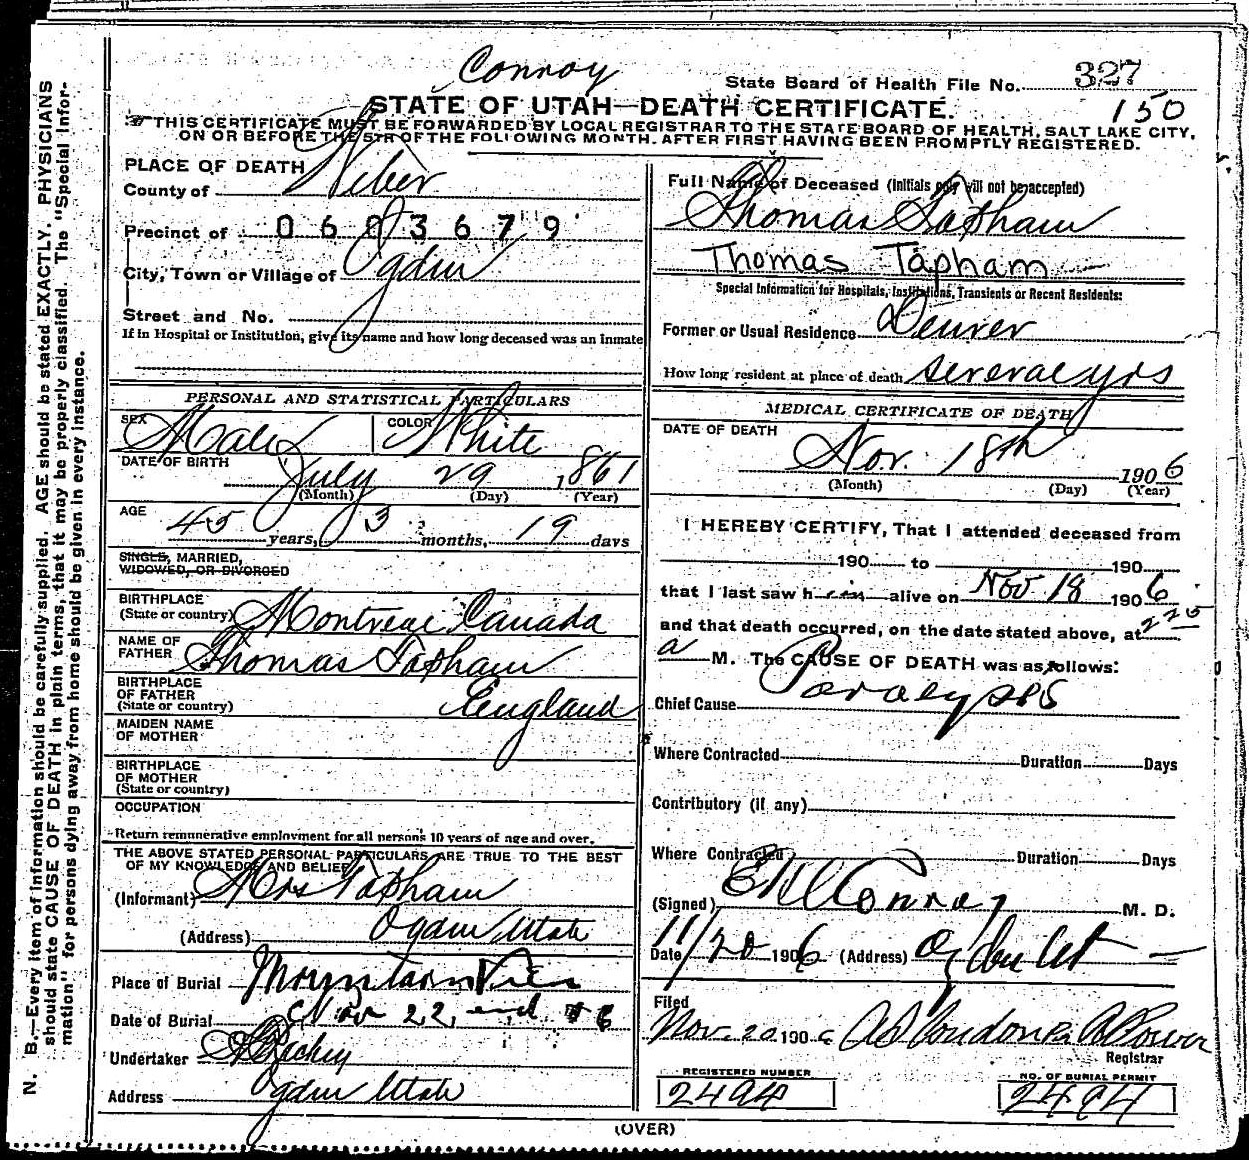 Conroy
State Board of Health File No. 327
150
STATE OF UTAH—DEATH CERTIFICATE.
THIS CERTIFICATE MUST BE FORWARDED BY LOCAL REGISTRAR TO THE STATE BOARD OF HEALTH, SALT LAKE CITY,
ON OR BEFORE THE 5TH OF THE FOLLOWING MONTH. AFTER FIRST HAVING BEEN PROMPTLY REGISTERED.
PLACE OF DEATH
County of Weber
Precinct of 0603679
City, Town or Village of Ogden
Street and No.
If in Hospital or Institution, give its name and how long deceased was an inmate
Full Name of Deceased (Initials only will not be accepted)
Thomas Tapham
Thomas Tapham
Special Information for Hospitals, Institutions, Transients or Recent Residents:
Former or Usual Residence Denver
How long resident at place of death several yrs
PERSONAL AND STATISTICAL PARTICULARS
SEX Male COLOR White
DATE OF BIRTH July 29 1861
(Month) (Day) (Year)
AGE 45 years, 3 months, 19 days
SINGLE, MARRIED,
WIDOWED, OR DIVORCED
BIRTHPLACE
(State or country) Montreal Canada
NAME OF
FATHER Thomas Tapham
BIRTHPLACE
OF FATHER
(State or country) England
MAIDEN NAME
OF MOTHER
BIRTHPLACE
OF MOTHER
(State or country)
OCCUPATION
Return remunerative employment for all persons 10 years of age and over.
THE ABOVE STATED PERSONAL PARTICULARS ARE TRUE TO THE BEST
OF MY KNOWLEDGE AND BELIEF
(Informant) Mrs Tapham
(Address) Ogden Utah
Place of Burial Mountain View
Date of Burial Nov 22
Undertaker
Address Ogden Utah
MEDICAL CERTIFICATE OF DEATH
DATE OF DEATH
Nov. 18th 1906
(Month) (Day) (Year)
I HEREBY CERTIFY, That I attended deceased from
190 to 190
that I last saw him alive on Nov 18 1906
and that death occurred, on the date stated above, at 2 25
a M. The CAUSE OF DEATH was as follows:
Chief Cause Paralysis
Where Contracted Duration Days
Contributory (if any)
Where Contracted Duration Days
(Signed) Conroy M. D.
Date 11/20 1906 (Address) Ogden Ut
Filed
Nov. 20 1906
Registrar
REGISTERED NUMBER
2494
NO. OF BURIAL PERMIT
2494
(OVER)
N. B.—Every item of information should be carefully supplied. AGE should be stated EXACTLY. PHYSICIANS
should state CAUSE OF DEATH in plain terms, that it may be properly classified. The "Special Infor-
mation" for persons dying away from home should be given in every instance.